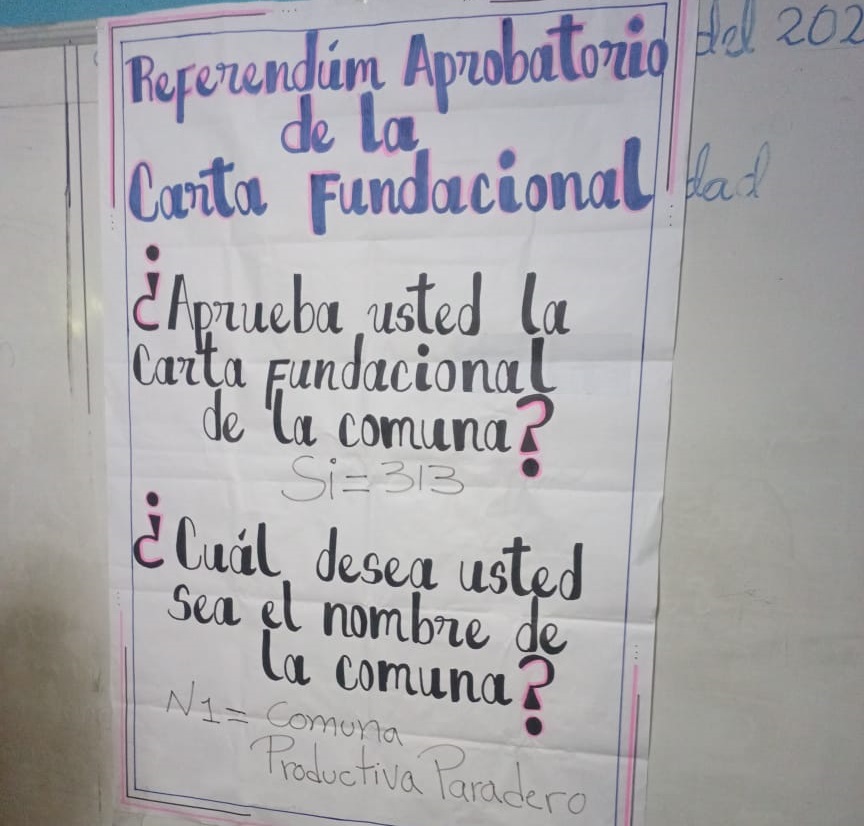 Referendúm Aprobatorio
de la
Carta Fundacional
¿Aprueba usted la
Carta Fundacional
de la comuna?
Si=313
¿Cuál desea usted
sea el nombre de
la comuna?
N1= Comuna
Productiva Paradero
del 202
dad